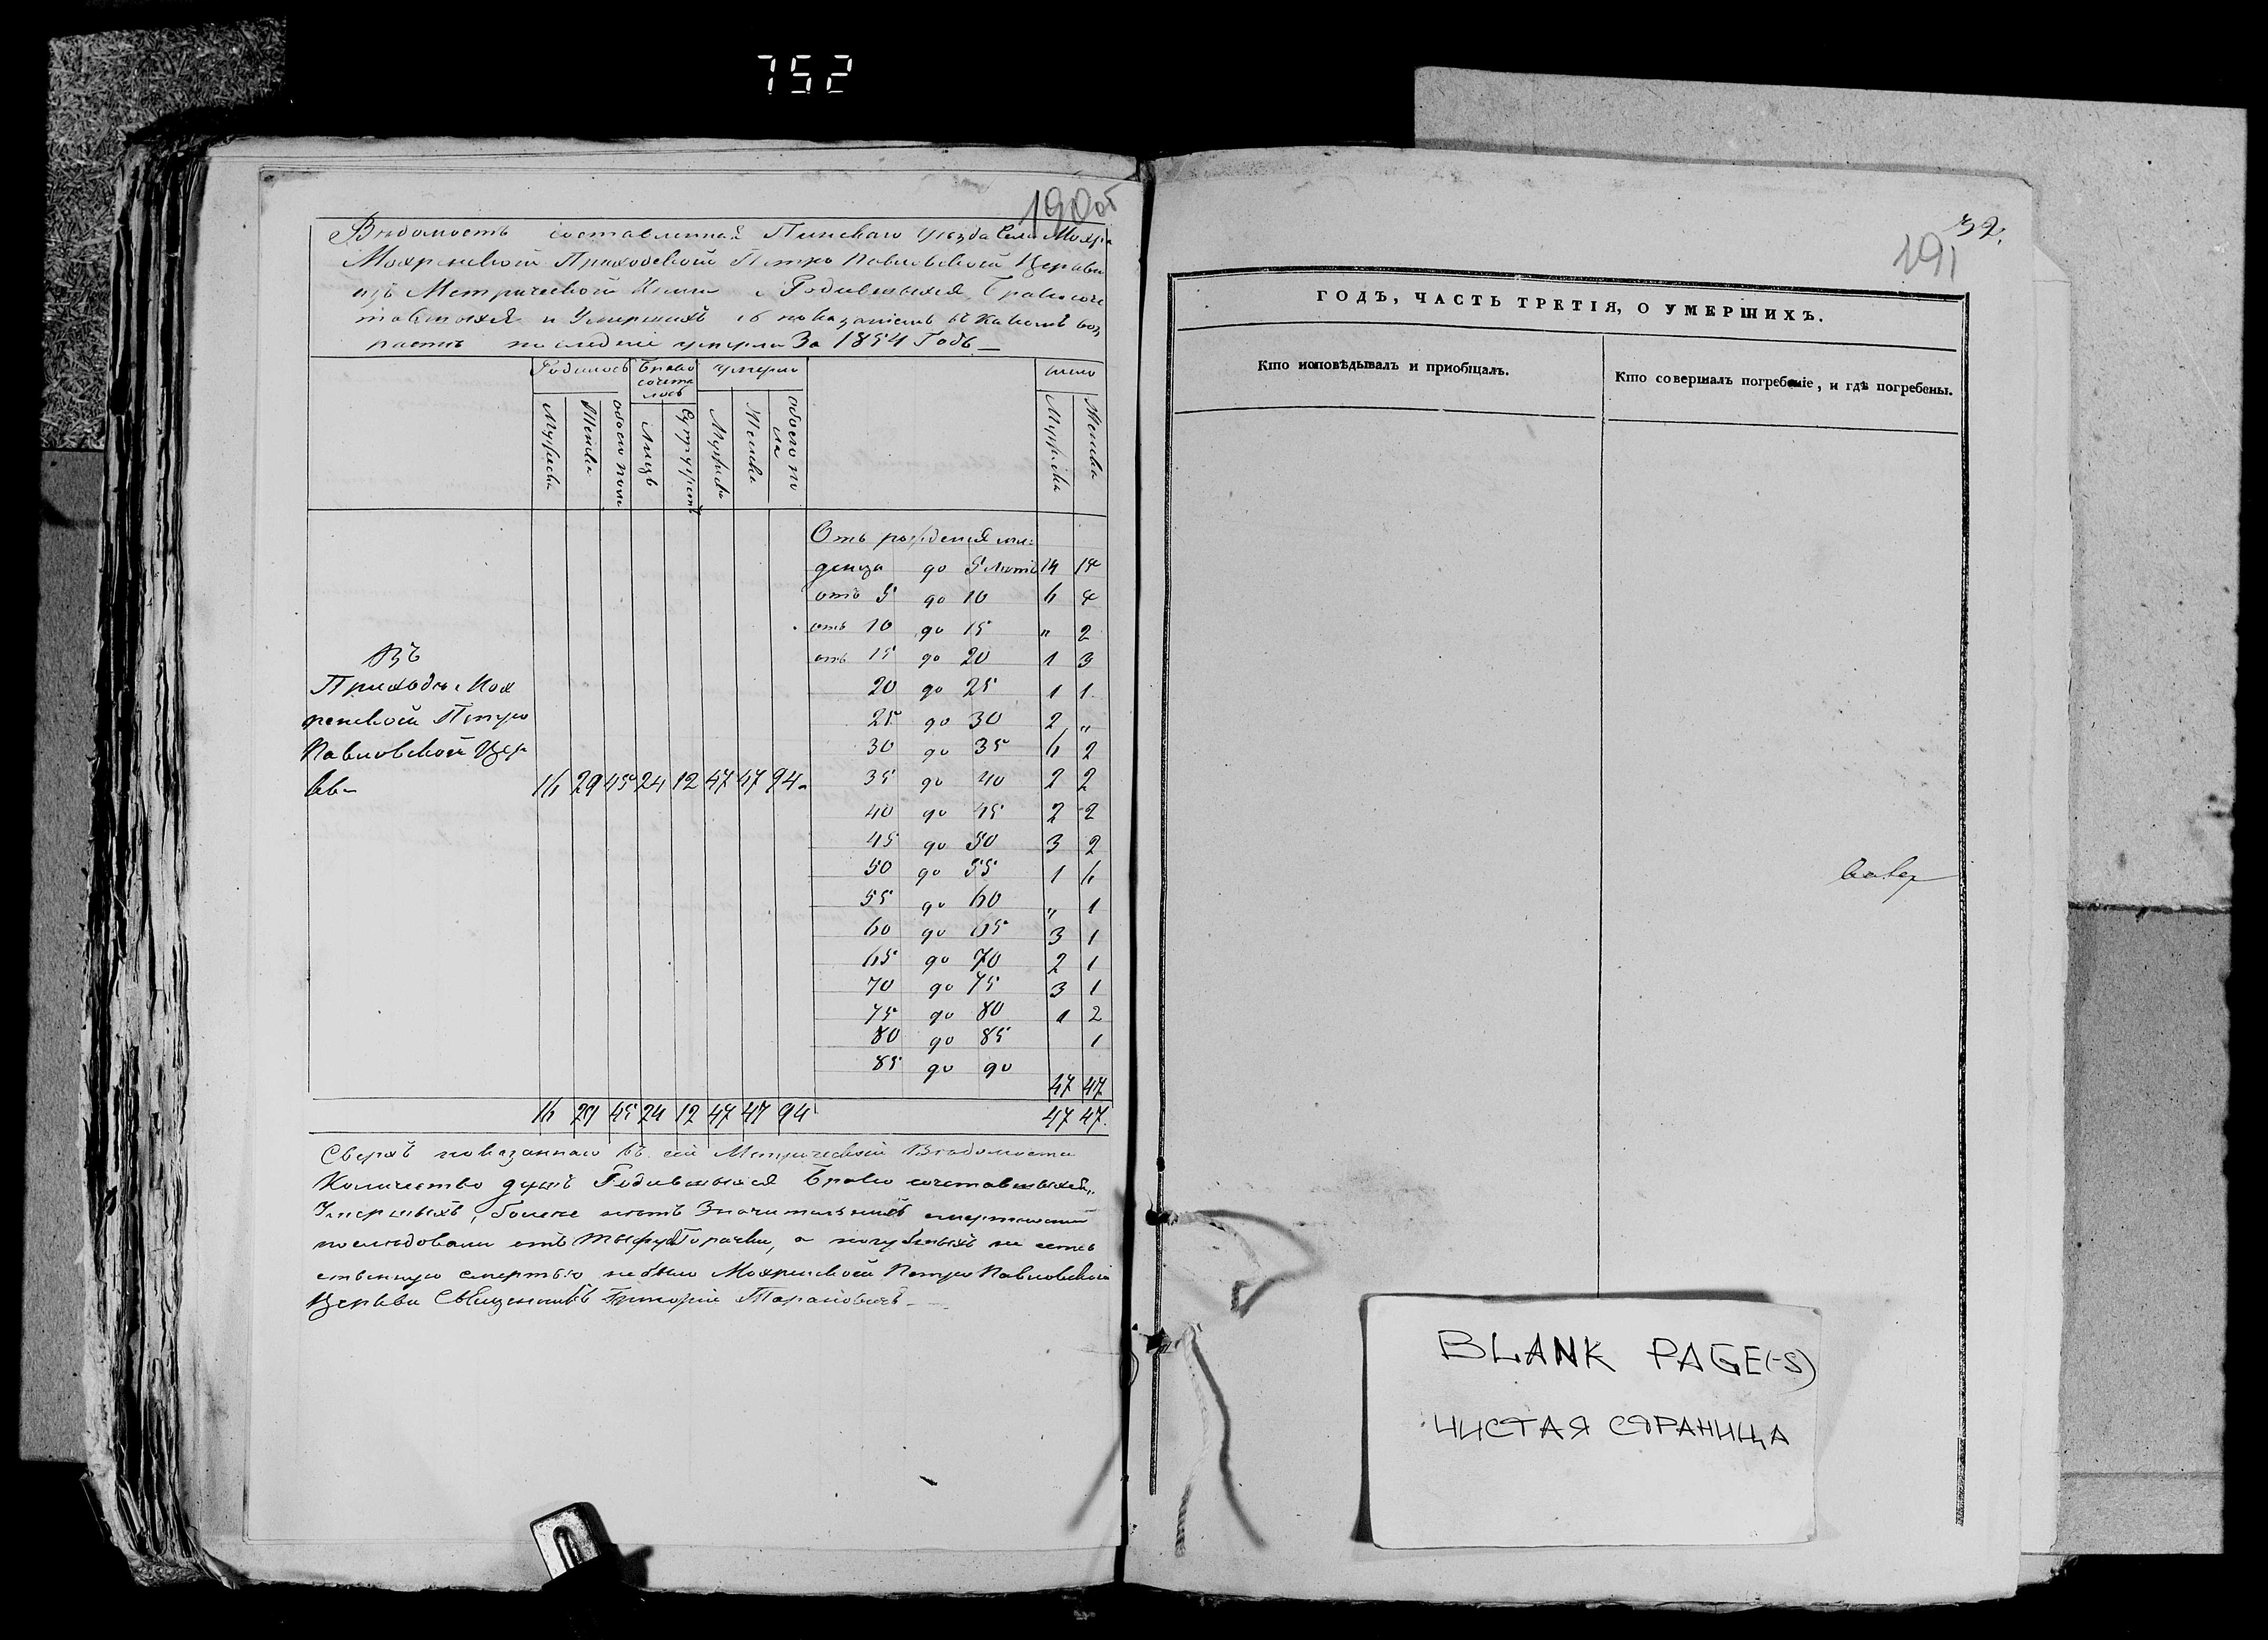 752
190 об
Вѣдомость составленная Пинскаго Уѣзда Села Мохра
Мохренской Приходской Петро Павловской Церкви
изъ Метрической Книги о Родившихся, Бракосоче
тавшихся и Умершихъ съ показаніемъ въ какомъ воз
растѣ последніе умерли За 1854 Годъ
Родилось Брако сочета лось умерло число
Мужеска Женска обоего пола Лицъ Супружествъ Мужеска Женска обоего по ла Мужеска Женска
Отъ рожденія мла:
денца до 5 лѣтъ 14 14
отъ 5 до 10 6 4
отъ 10 до 15 " 2
отъ 15 до 20 1 3
20 до 25 1 1
25 до 30 2 "
30 до 35 6 2
35 до 40 2 2
40 до 45 2 2
45 до 50 3 2
50 до 55 1 6
55 до 60 " 1
60 до 65 3 1
65 до 70 2 1
70 до 75 3 1
75 до 80 1 2
80 до 85 1
85 до 90
47 47
Въ
Приходѣ Мох
ренской Петро
Павловской Цер
кви 16 29 45 24 12 47 47 94
16 29 45 24 12 47 47 94 47 47
Сверхъ показаннаго въ сей Метрической Вѣдомости
Количество душъ Родившихся Брако сочетавшихся,
Умершихъ, болѣе нѣтъ Значительный смертности
последовали отъ Горячки, а не есте
ственную смертью небыло Мохренской Петро Павловской
Церкви Священникъ Григорій Тарановичъ
32.
191
ГОДЪ, ЧАСТЬ ТРЕТІЯ, О УМЕРШИХЪ.
Кто исповѣдывалъ и пріобщалъ.
Кто совершалъ погребеніе, и гдѣ погребены.
BLANK PAGE(-S)
ЧИСТАЯ СТРАНИЦА